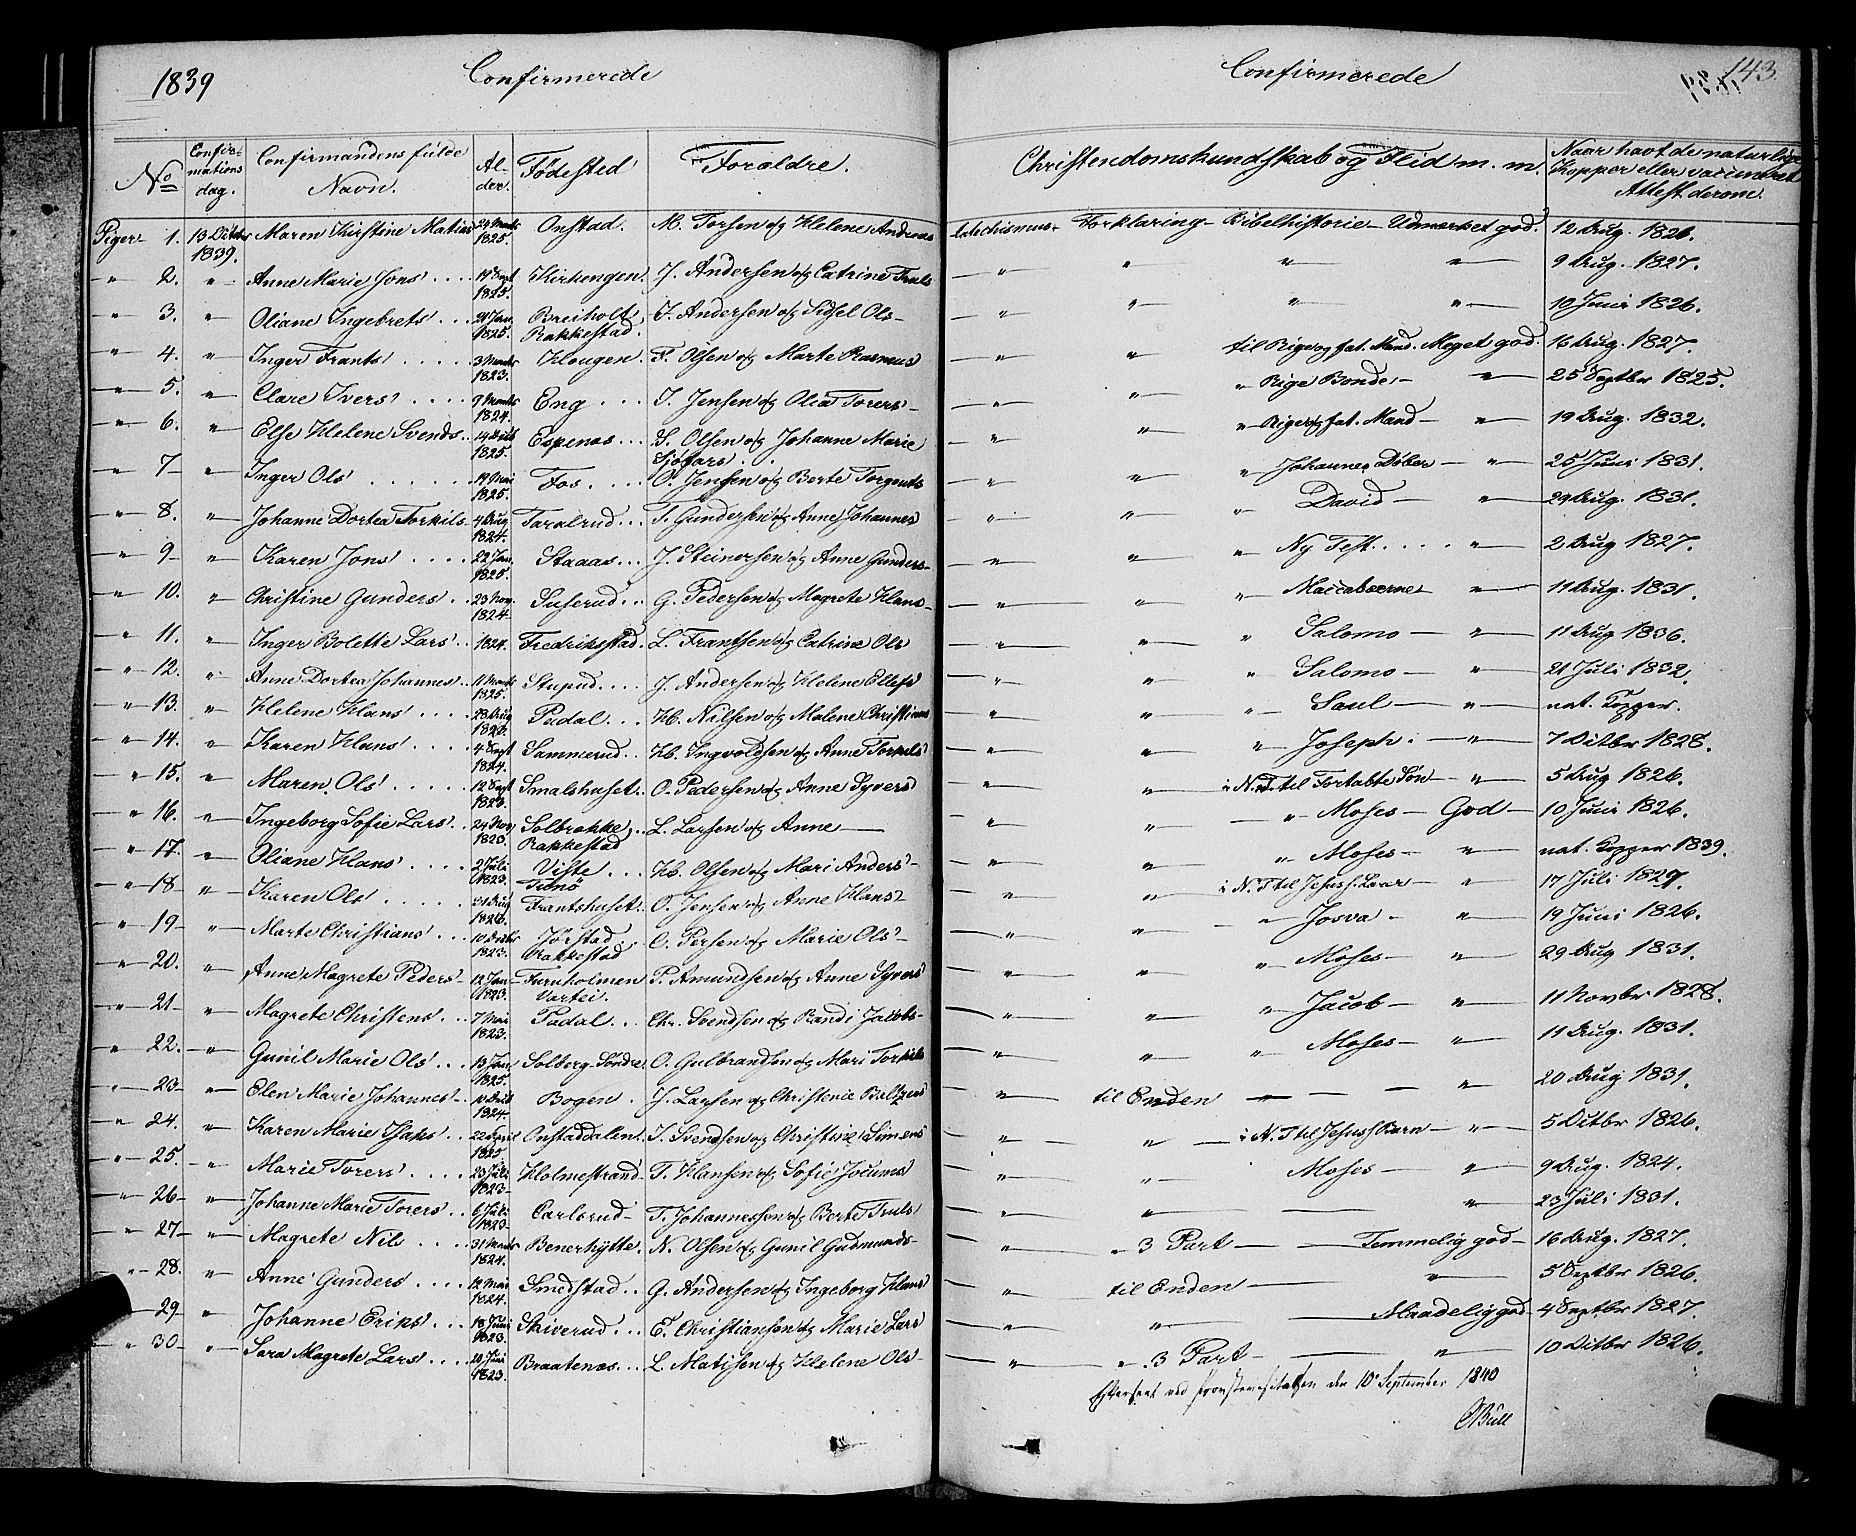 1839 Confirmerede
Confirmerede 143.
No Confirmationsdag. Confirmandens fulde Navn. Alder. Fødested Forældre. Christendomskundskab og Flid m. m. Naar havt de naturlige Kopper eller vaccineret Attest derom.
Piger 1. 13 Octbr 1839. Maren Kirstine Matias 24 Marts 1825. Onstad. M. Torsen og Helene Andreas Catechismus - Forklaring - Bibelhistorie - Udmerket god. 12 Aug. 1826.
" 2. " Anne Marie Jons' 14 Sept 1825. Kirkengen. J. Andersen og Catrine Truls — " " " " 9 Aug. 1827.
" 3. " Oliane Ingebrets' Jan 1825. Breiholt, Rakkestad. I. Andersen og Sidsel Ols — " " " " 10 Juni 1826.
" 4. " Inger Frants' 3 Marts 1823. Klougen. F. Olsen og Marte Rasmus — " " til Rige og fat. Mand. Meget god. 16 Aug. 1827.
" 5. " Clare Ivers' 9 Marts 1824. Eng I. Jensen og Olia Torers — " " " Rige Bonde " 25 Septbr 1825.
" 6. " Else Helene Svends 14 1825. Espenæs S. Olsen og Johanne Marie Sjøfars — " " " Rige og fat. Mand — " 19 Aug. 1832.
" 7 — " Inger Ols' 14 Mai 1825. Fos. O. Jensen og Berte Torgents — " " " Johannes Døber — " 25 Juni 1831.
" 8. " Johanne Dortea Torkils 4 Aug 1824. Taralrud T. Gundersen og Anne Johannes — " " " David — " 29 Aug. 1831.
" 9 — " Karen Jons' 22 Jan. 1825. Staaas J. Steinersen og Anne Gunders — " " " Ny Test. " 2 Aug 1827.
" 10. " Christine Gunders 23 Nov. 1824. Suserud G. Pedersen og Magrete Hans — " " " Maccabæerne " 11 Aug. 1831.
" 11. " Inger Bolette Lars' 1824. Fredrikstad. L. Frantsen og Catrine Ols — " " " Salomo — " 11 Aug 1836.
" 12. " Anne Dortea Johannes 11 Marts 1825. Stupud J. Andersen og Helene Ellefs — " " " Salomo — " 21 Juli 1832.
" 13. " Helene Hans' 23 Aug Padal H. Nilsen og Malene Christians — " " " Saul — " nat. Kopper.
" 14. " Karen Hans' 4 Sept 1824. Sammerud H. Ingvoldsen og Anne Torkels' — " " " Joseph. — " 7 Octbr 1828.
" 15. " Maren Ols' 12 Sept 1823. Smalshuset O. Pedersen og Anne Syvers — " " i N. T til Fortabte Søn — " 5 Aug 1826.
" 16. " Ingeborg Sofie Lars' 24 Nov 1823. Solbrække, Rakkestad L. Larsen og Anne — " " " Moses — God — 10 Juni 1826.
" 17. " Oliane Hans' 2 Juli 1823. Viste H. Olsen og Mari Anders' — " " " Moses — " nat. Kopper 1839.
" 18 — " Karen Ols' 31 Aug Frantshuset O. Jensen og Anne Hans' — " " i N. T til Jesus f. Laar — " 17 Juli 1827.
" 19 — " Marte Christians' 10 Octbr 1823. Jørstad Rakkestad C. Persen og Marie Ols' — " " " Josva — " 19 Juni 1826.
" 20. " Anne Magrete Peders' 12 Jan 1823. Furuholmen Vartei. P. Amundsen og Anne Syvers' — " " " Moses — " 29 Aug 1831.
" 21 — " Magrete Christens 7 Mai 1823. Padal Chr. Svendsen og Randi Jacobs — " " " Jacob — " 11 Novbr 1828.
" 22. " Gunil Marie Ols' 13 Jan 1825. Solberg Søndre O. Gulbrandsen og Mari Torkils — " " " Moses — " 11 Aug. 1831.
" 23 — " Elen Marie Johannes' 1824. Bogen J. Larsen og Christenie Baltzers — " til Enden — " 20 Aug 1831.
" 24. " Karen Marie Isaks' 22 April 1825 Onstaddalen I. Svendsen og Christine Simens — " " i N. T til Jesus f Barn — " 5 Octbr 1826.
" 25. " Marie Torers' 23 Juli 1823 Holmestrand T. Hansen og Sofie Jocums — " " Moses — " 9 Aug. 1824.
" 26 — " Johanne Marie Torers' 6 Juli 1823 Carlsrud T. Johannessen og Berte Truls' — " " " 23 Juli 1831.
" 27 — " Magrete Nils 31 Marts 1824. Benerhytte. N. Olsen og Gunil Gudmunds — " " 3 Part — Temmelig god — 16 Aug. 1827.
" 28. " Anne Gunders' 14 Mai 1824. Smedstad G. Andersen og Ingeborg Hans' — " til Enden — " 5 Septbr 1826.
" 29 — " Johanne Eriks' 18 Juni 1823. Skiverud E. Christiansen og Marie Lars' — " " — Maadelig god 4 Septbr 1827.
" 30 — " Sara Magrete Lars' 20 Juni 1823. Braatenæs L. Matisen og Helene Ols — " " 3 Part — " 10 Octbr 1826.
Efterseet ved Provstevisitatsen den 10 September 1840
Bull